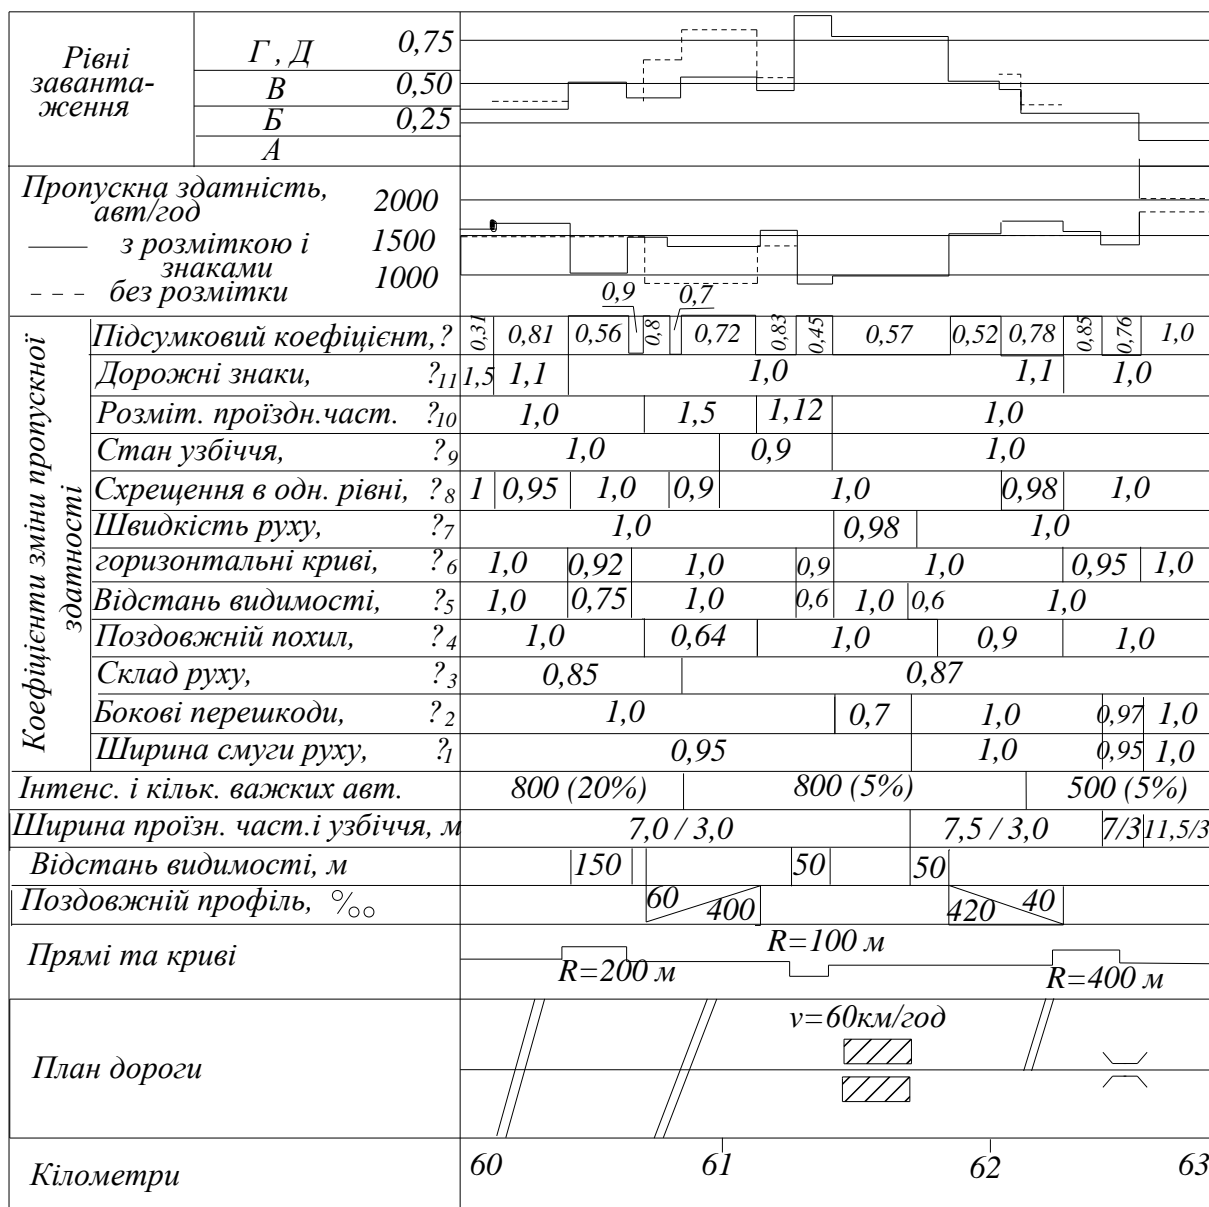 Рівні заванта-ження
Г , Д 0,75
В 0,50
Б 0,25
А
Пропускна здатність, авт/год
2000
з розміткою і знаками 1500
без розмітки 1000
0,9 0,7
Коефіцієнти зміни пропускної здатності
Підсумковий коефіцієнт,? 0,31 0,81 0,56 0,8 0,72 0,83 0,45 0,57 0,52 0,78 0,85 0,76 1,0
Дорожні знаки, ?11 1,5 1,1 1,0 1,1 1,0
Розміт. проїздн.част. ?10 1,0 1,5 1,12 1,0
Стан узбіччя, ?9 1,0 0,9 1,0
Схрещення в одн. рівні, ?8 1 0,95 1,0 0,9 1,0 0,98 1,0
Швидкість руху, ?7 1,0 0,98 1,0
горизонтальні криві, ?6 1,0 0,92 1,0 0,9 1,0 0,95 1,0
Відстань видимості, ?5 1,0 0,75 1,0 0,6 1,0 0,6 1,0
Поздовжній похил, ?4 1,0 0,64 1,0 0,9 1,0
Склад руху, ?3 0,85 0,87
Бокові перешкоди, ?2 1,0 0,7 1,0 0,97 1,0
Ширина смуги руху, ?1 0,95 1,0 0,95 1,0
Інтенс. і кільк. важких авт. 800 (20%) 800 (5%) 500 (5%)
Ширина проїзн. част.і узбіччя, м 7,0 / 3,0 7,5 / 3,0 7/3 11,5/3
Відстань видимості, м 150 50 50
Поздовжній профіль, %00 60 400 420 40
Прямі та криві R=200 м R=100 м R=400 м
План дороги v=60км/год
Кілометри 60 61 62 63